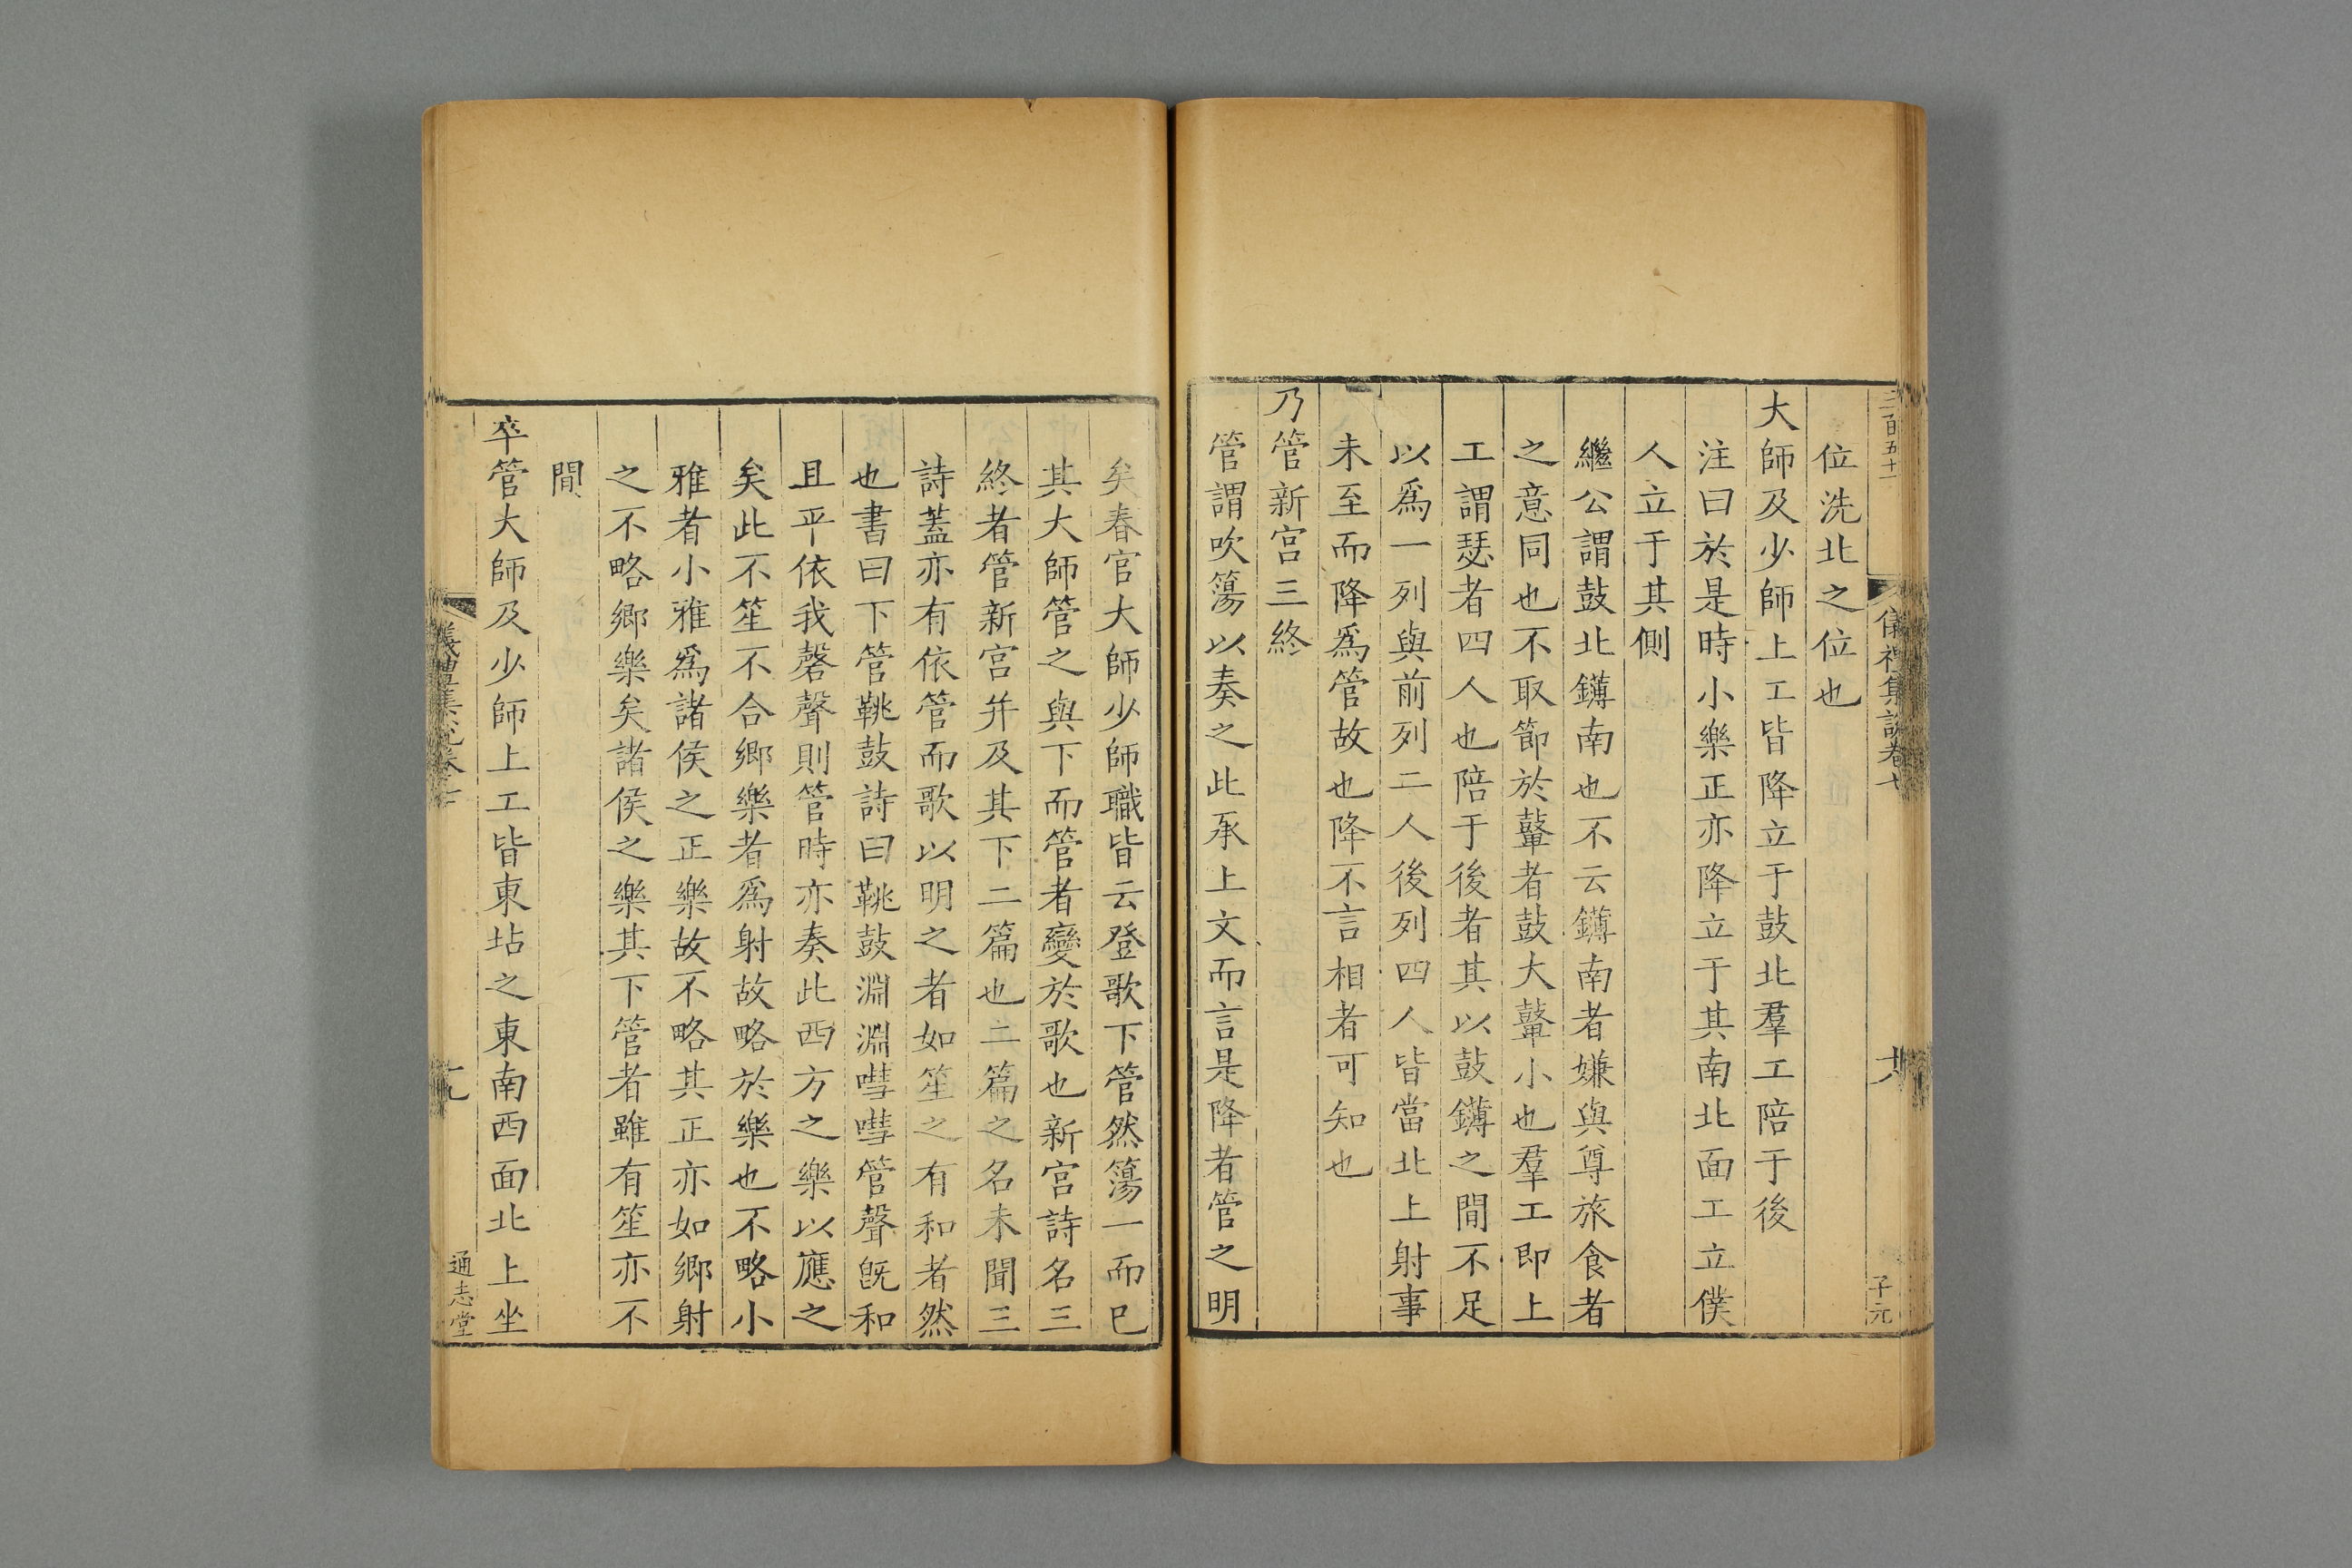 三百五十一
儀禮集說卷七
十八
子元
位洗北之位也
大師及少師上工皆降立于鼓北羣工陪于後
注曰於是時小樂正亦降立于其南北面工立僕
人立于其側
繼公謂鼓北鑮南也不云鑮南者嫌與尊旅食者
之意同也不取節於鼙者鼓大鼙小也羣工即上
工謂瑟者四人也陪于後者其以鼓鑮之間不足
以爲一列與前列二人後列四人皆當北上射事
未至而降爲管故也降不言相者可知也
乃管新宮三終
管謂吹簜以奏之此承上文而言是降者管之明
矣春官大師少師職皆云登歌下管然簜一而已
其大師管之與下而管者變於歌也新宮詩名三
終者管新宮并及其下二篇也二篇之名未聞三
詩蓋亦有依管而歌以明之者如笙之有和者然
也書曰下管鞉鼓詩曰鞉鼓淵淵嘒嘒管聲旣和
且平依我磬聲則管時亦奏此西方之樂以應之
矣此不笙不合鄉樂者爲射故略於樂也不略小
雅者小雅爲諸侯之正樂故不略其正亦如鄉射
之不略鄉樂矣諸侯之樂其下管者雖有笙亦不
間
卒管大師及少師上工皆東坫之東南西面北上坐
儀禮集說卷七
十九
通志堂